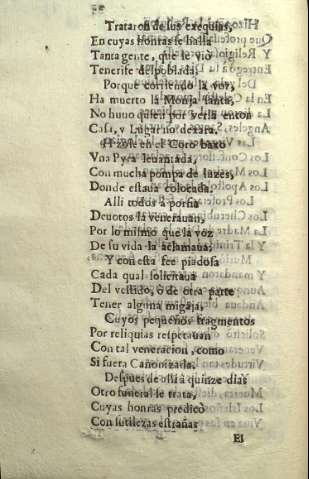 Trataron de sus exequias,
En cuyas honras se halla
Tanta gente, que se viò
Tenerife despoblada,
Porque corriendo la voz,
Ha muerto la Monja santa,
No huuo quien por verla enton
Casa, y Lugar no dexara.
Hizose en el Coro baxo
Vna Pyra leuantada,
Con mucha pompa de luzes,
Donde estaua colocada.
Alli todos à porfia
Deuotos la venerauan,
Por lo mismo que la voz
De su vida la aclamaua;
Y con esta fee piadosa
Cada qual solicitaua
Del vestido, ò de otra parte
Tener alguna migaja,
Cuyos pequeños fragmentos
Por reliquias respetauan
Con tal veneracion, como
Si fuera Canonizada.
Despues de alli à quinze dias
Otro funeral se trata,
Cuyas honras predicò
Con sutilezas estrañas
El